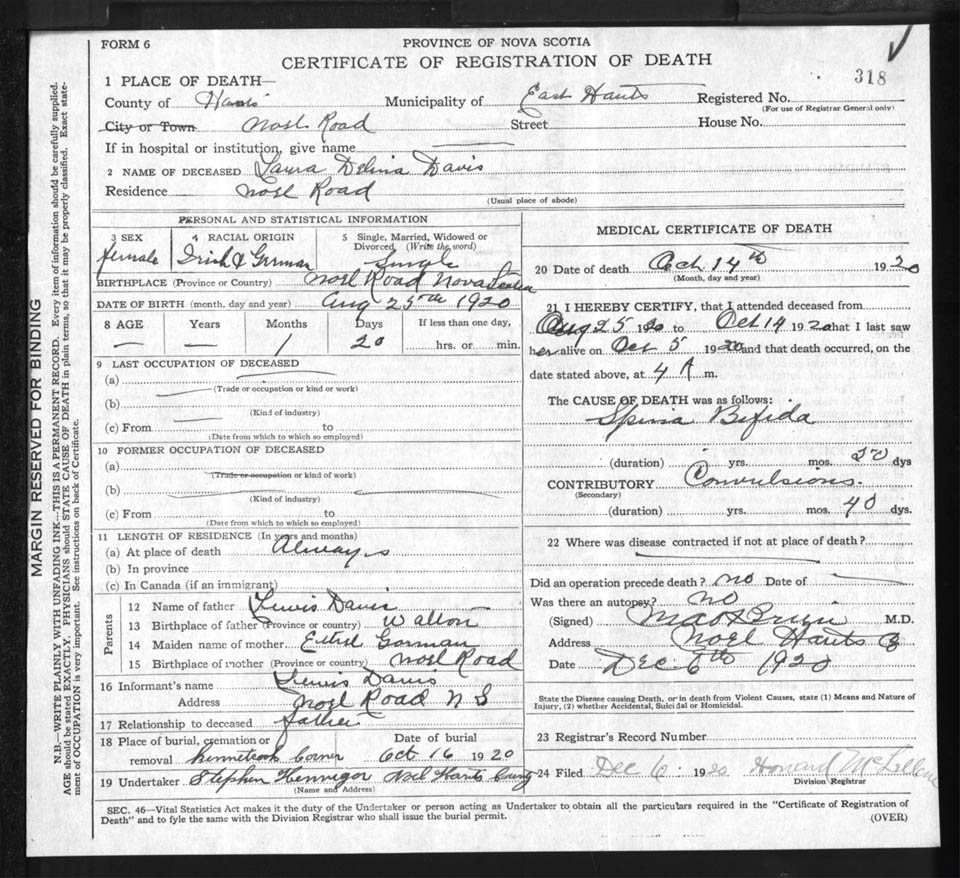 FORM 6
PROVINCE OF NOVA SCOTIA
CERTIFICATE OF REGISTRATION OF DEATH
318
1 PLACE OF DEATH—
County of Hants Municipality of East Hants Registered No.
(For use of Registrar General only)
City or Town Noel Road Street House No.
If in hospital or institution, give name
2 NAME OF DECEASED Laura Delina Davis
Residence Noel Road
(Usual place of abode)
PERSONAL AND STATISTICAL INFORMATION
3 SEX 4 RACIAL ORIGIN 5 Single, Married, Widowed or Divorced (Write the word)
female Irish & German Single
BIRTHPLACE (Province or Country) Noel Road Nova Scotia
DATE OF BIRTH (month, day and year) Aug 25th 1920
8 AGE Years Months Days If less than one day,
— — 1 20 hrs. or min.
9 LAST OCCUPATION OF DECEASED
(a)
(Trade or occupation or kind or work)
(b)
(Kind of industry)
(c) From to
(Date from which to which so employed)
10 FORMER OCCUPATION OF DECEASED
(a)
(Trade or occupation or kind of work)
(b)
(Kind of industry)
(c) From to
(Date from which to which so employed)
11 LENGTH OF RESIDENCE (In years and months)
(a) At place of death Always
(b) In province
(c) In Canada (if an immigrant)
Parents
12 Name of father Lewis Davis
13 Birthplace of father (Province or country) Walton
14 Maiden name of mother Ethel Gorman
15 Birthplace of mother (Province or country) Noel Road
16 Informant's name Lewis Davis
Address Noel Road N S
17 Relationship to deceased father
18 Place of burial, cremation or removal Date of burial
Kennetcook Corner Oct 16 1920
19 Undertaker Stephen Hennigar Noel Hants County
(Name and Address)
MEDICAL CERTIFICATE OF DEATH
20 Date of death Oct 14th 1920
(Month, day and year)
21 I HEREBY CERTIFY, that I attended deceased from
Aug 25 1920 to Oct 14 1920 that I last saw
her alive on Oct 5 1920 and that death occurred, on the
date stated above, at 4 A m.
The CAUSE OF DEATH was as follows:
Spina Bifida
(duration) yrs. mos. 50 dys
CONTRIBUTORY Convulsions.
(Secondary)
(duration) yrs. mos. 40 dys.
22 Where was disease contracted if not at place of death?
Did an operation precede death? no Date of
Was there an autopsy? no
(Signed) M.D.
Address Noel Hants Co
Date Dec 6th 1920
State the Disease causing Death, or in death from Violent Causes, state (1) Means and Nature of
Injury, (2) whether Accidental, Suicidal or Homicidal.
23 Registrar's Record Number
24 Filed Dec 6 1920 Howard McLellan
Division Registrar
SEC. 46—Vital Statistics Act makes it the duty of the Undertaker or person acting as Undertaker to obtain all the particulars required in the "Certificate of Registration of
Death" and to fyle the same with the Division Registrar who shall issue the burial permit.
(OVER)
MARGIN RESERVED FOR BINDING
N.B.—WRITE PLAINLY WITH UNFADING INK—THIS IS A PERMANENT RECORD. Every item of information should be carefully supplied.
AGE should be stated EXACTLY. PHYSICIANS should STATE CAUSE OF DEATH in plain terms, so that it may be properly classified. Exact state-
ment of OCCUPATION is very important. See instructions on back of Certificate.